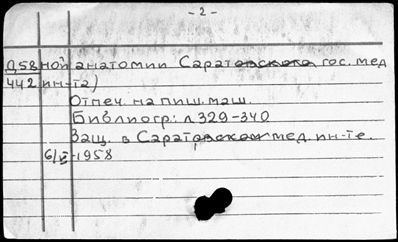 - 2 -
Д58 ной анатомии Саратовского гос. мед
442 ин-та)
Отпеч. на пиш. маш.
Библиогр.: л 329-340
Защ. в Саратовском мед. ин-те.
6/VI-1958